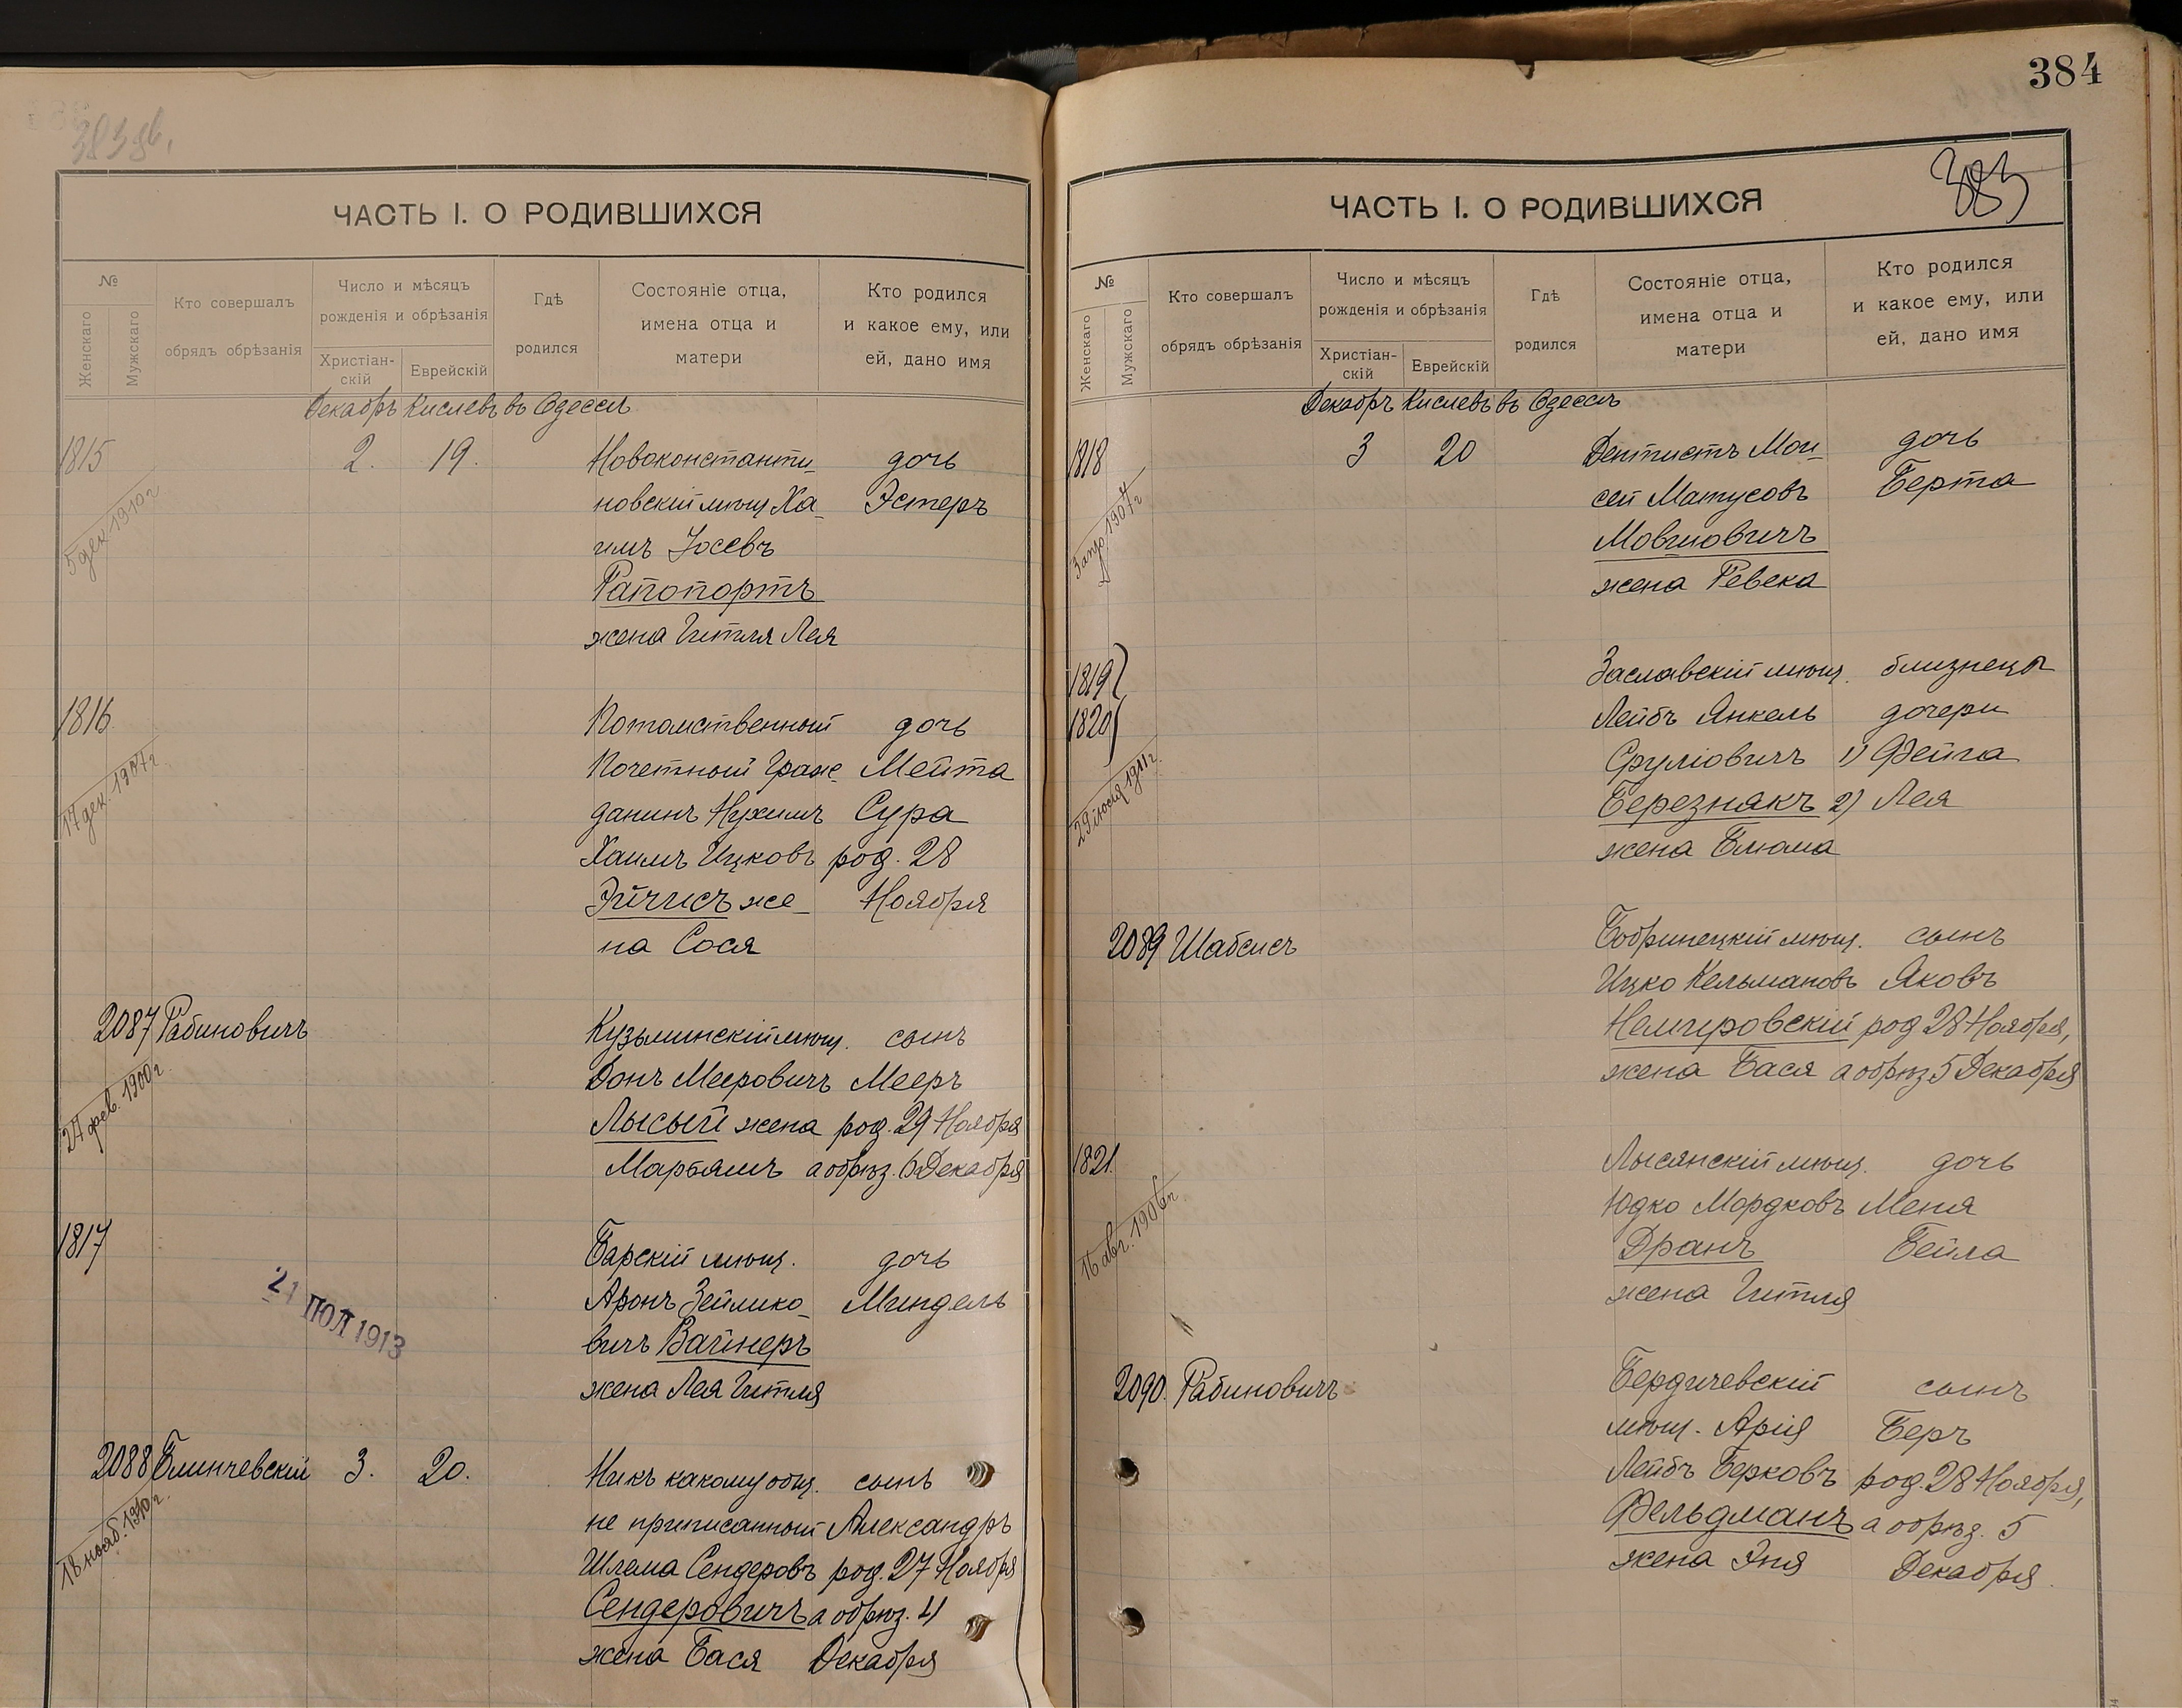 383 об.
ЧАСТЬ I. О РОДИВШИХСЯ
№
Женскаго
Мужскаго
Кто совершалъ
обрядъ обрѣзанія
Число и мѣсяцъ
рожденія и обрѣзанія
Христіан-
скій
Еврейскій
Гдѣ
родился
Состояніе отца,
имена отца и
матери
Кто родился
и какое ему, или
ей, дано имя
Декабрь Кислевъ въ Одессѣ
1815 2. 19. Новоконстанти- дочь
новскій мѣщ Ха- Эстеръ
имъ Іосевъ
Рапопортъ
жена Гитля Лея
5 дек. 1910 г
1816 Потомственный дочь
Почетный Граж- Мейта
данинъ Нухимъ Сура
Хаимъ Ицковъ род. 28
Эйчисъ же- Ноября
на Сося
17 дек. 1907 г.
2087 Рабиновичъ Кузьминскій мѣщ. сынъ
Донъ Мееровичъ Мееръ
Лысый жена род. 29 Ноября
Марьямъ а обрѣз. 6 Декабря
24 фев. 1900 г.
1817 Барскій мѣщ. дочь
Аронъ Зейлико- Миндель
вичъ Вайнеръ
жена Лея Гитля
21 ІЮЛ 1913
2088 Блинчевскій 3. 20. Никъ какому общ. сынъ
не приписанный Александръ
Шлема Сендеровъ род. 27 Ноября
Сендеровичъ а обрѣз. 4
жена Бася Декабря
18 нояб. 1910 г.
384
383
ЧАСТЬ I. О РОДИВШИХСЯ
№
Женскаго
Мужскаго
Кто совершалъ
обрядъ обрѣзанія
Число и мѣсяцъ
рожденія и обрѣзанія
Христіан-
скій
Еврейскій
Гдѣ
родился
Состояніе отца,
имена отца и
матери
Кто родился
и какое ему, или
ей, дано имя
Декабрь Кислевъ въ Одессѣ
1818 3 20 Дентистъ Мои- дочь
сей Матусовъ Берта
Мовшовичъ
жена Ревека
1907 г
1819 Заславскій мѣщ. близнецы
1820 Лейбъ Янкель дочери
Сруліовичъ 1) Фейга
Березнякъ 2) Лея
жена Блюма
29 іюля 1911 г.
2089 Шабсисъ Бобринецкій мѣщ. сынъ
Ицко Кельмановъ Яковъ
Немировскій род 28 Ноября,
жена Бася а обрѣз 5 Декабря
1821. Лысянскій мѣщ. дочь
Юдко Мордковъ Меня
Дранъ Бейла
жена Гитля
16 авг. 1906 г.
2090. Рабиновичъ Бердичевскій сынъ
мѣщ. Арія Беръ
Лейбъ Берковъ род. 28 Ноября,
Фельдманъ а обрѣз. 5
жена Эня Декабря.